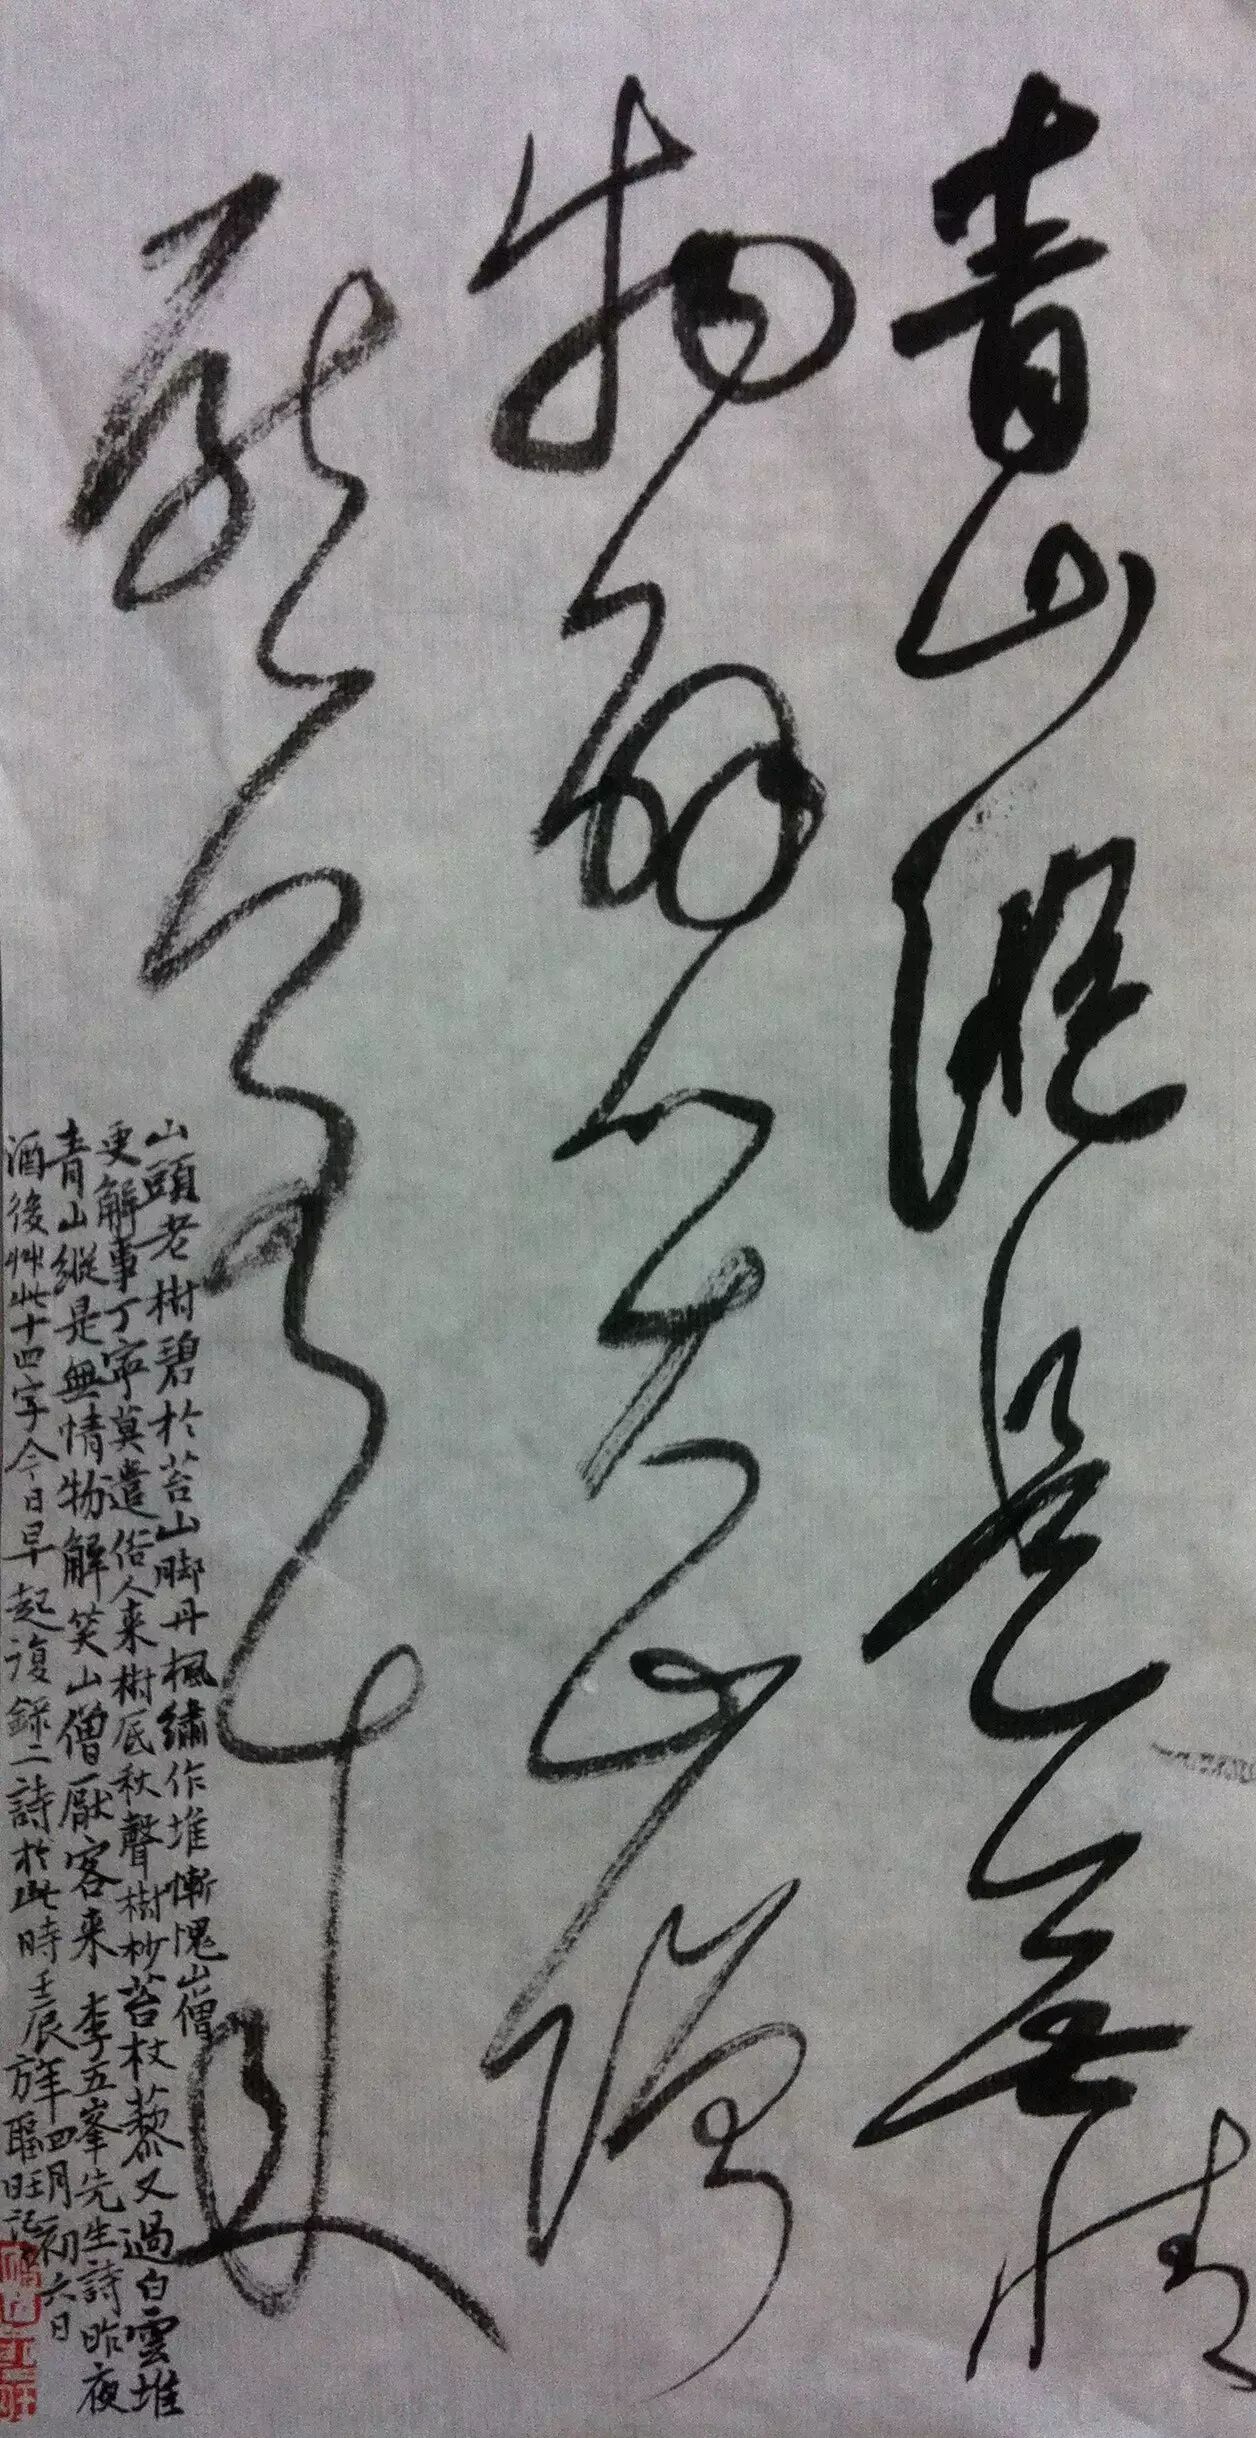 青山縱是無情
物解笑山僧
厭客來
山頭老樹碧於苔山脚丹楓繡作堆慚愧山僧
更解事丁寧莫遣俗人来樹底秋聲樹杪苔杖藜又過白雲堆
青山縱是無情物解笑山僧厭客来 李五峯先生詩昨夜
酒後艸此十四字今日早起復錄二詩於此時壬辰年四月初六日
方聯旺記